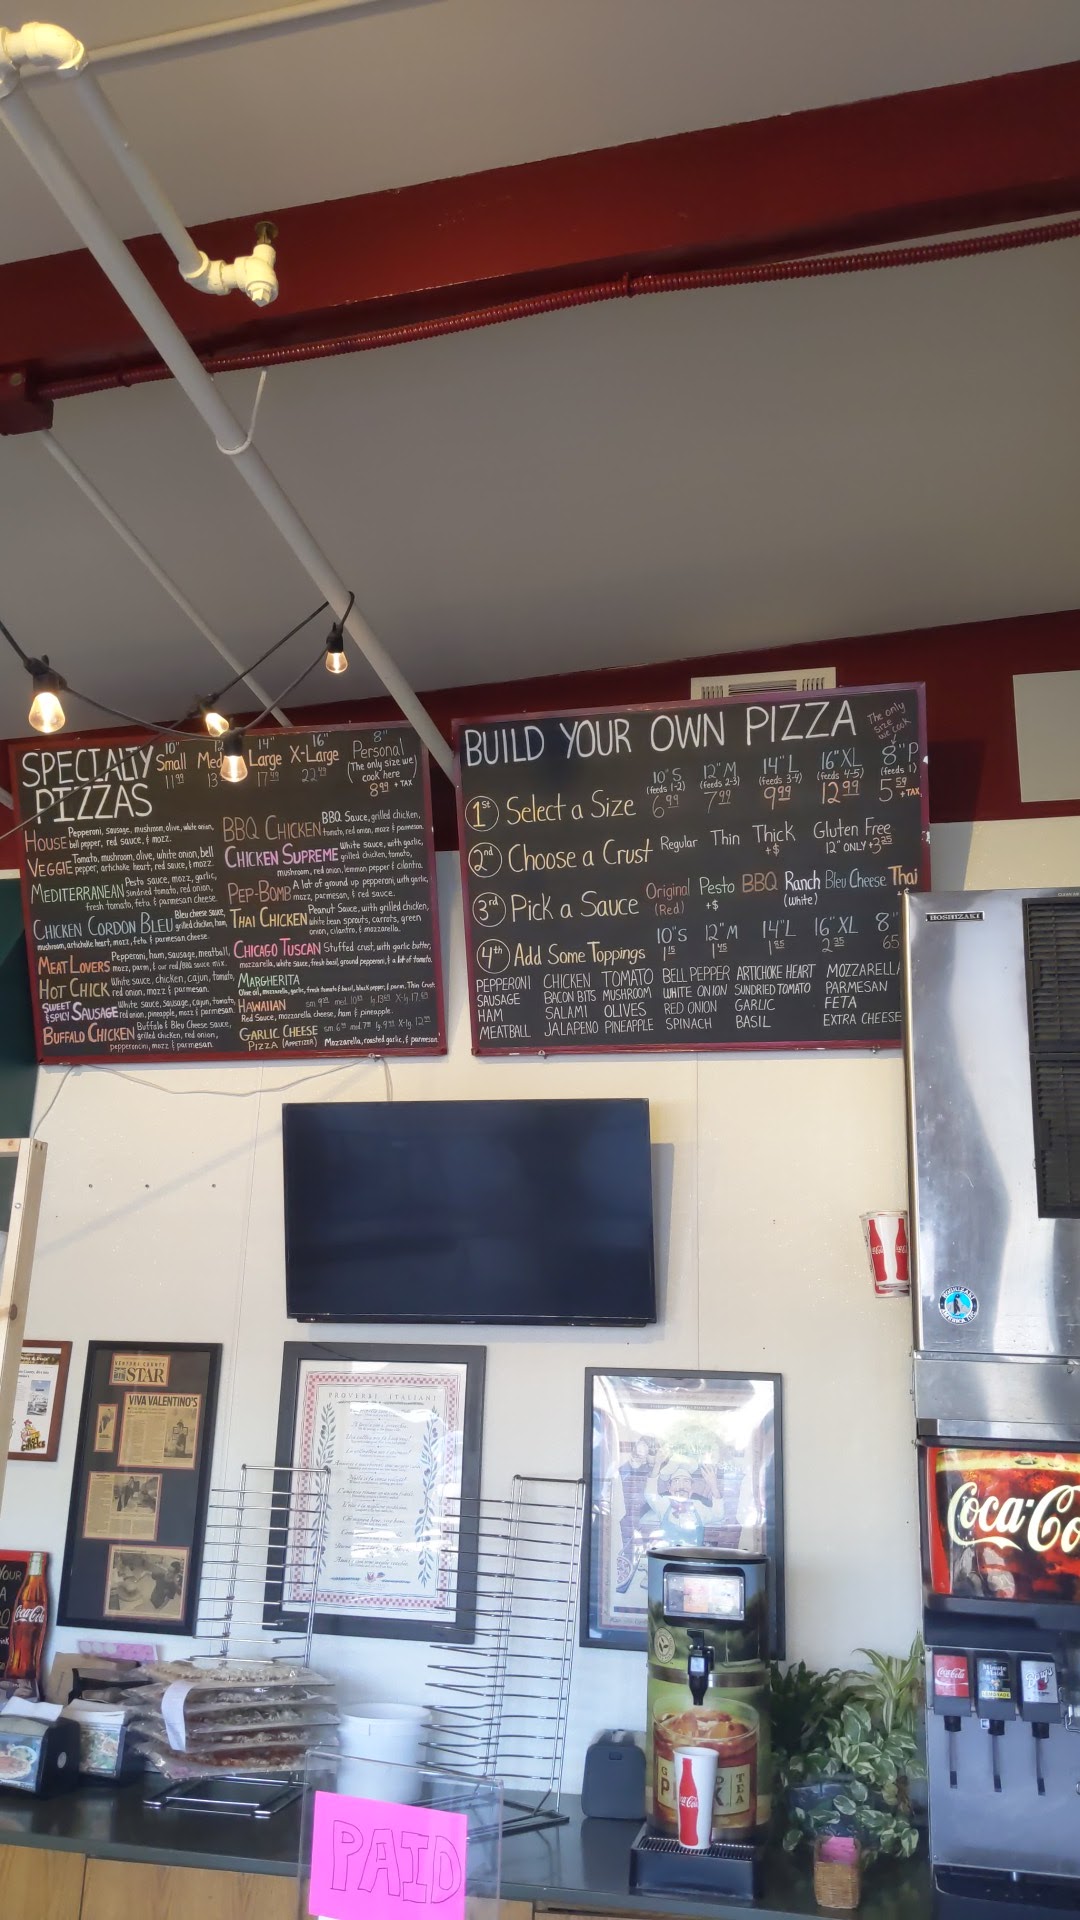 SPECIALTY PIZZAS
10" Small 11.99
12 Med 13
14" Large 17.49
16" X-Large 22.49
8" Personal (The only size we cook here) 8.99 + TAX
HOUSE Pepperoni, sausage, mushroom, olive, white onion,
bell pepper, red sauce, & mozz.
VEGGIE Tomato, mushroom, olive, white onion, bell
pepper, artichoke heart, red sauce, & mozz.
MEDITERRANEAN Pesto sauce, mozz, garlic,
sundried tomato, red onion,
fresh tomato, feta & parmesan cheese.
CHICKEN CORDON BLEU Bleu cheese sauce,
grilled chicken, ham,
mushroom, artichoke heart, mozz, feta, & parmesan cheese.
MEAT LOVERS Pepperoni, ham, sausage, meatball,
mozz, parm, & our red/BBQ sauce mix.
HOT CHICK White sauce, chicken, cajun, tomato,
red onion, mozz, & parmesan.
SWEET & SPICY SAUSAGE White sauce, sausage, cajun, tomato,
red onion, pineapple, mozz, & parmesan.
BUFFALO CHICKEN Buffalo & Bleu Cheese Sauce,
grilled chicken, red onion,
pepperoncini, mozz & parmesan.
BBQ CHICKEN BBQ Sauce, grilled chicken,
tomato, red onion, mozz & parmesan.
CHICKEN SUPREME White sauce, with garlic,
grilled chicken, tomato,
mushroom, red onion, lemmon pepper & cilantro.
PEP-BOMB A lot of ground up pepperoni, with garlic,
mozz, parmesan, & red sauce.
THAI CHICKEN Peanut Sauce, with grilled chicken,
white bean sprouts, carrots, green
onion, cilantro, & mozzarella.
CHICAGO TUSCAN Stuffed crust, with garlic butter,
mozzarella, white sauce, fresh basil, ground pepperoni, & a lot of tomato.
MARGHERITA
Olive oil, mozzarella, garlic, fresh tomato & basil, black pepper, & parm. Thin Crust
HAWAIIAN
Red Sauce, mozzarella cheese, ham & pineapple.
GARLIC CHEESE
PIZZA (APPETIZER) Mozzarella, roasted garlic, & parmesan
BUILD YOUR OWN PIZZA
The only size we cook
10"S 12"M 14"L 16"XL 8"P
(feeds 1-2) (feeds 2-3) (feeds 3-4) (feeds 4-5) (feeds 1)
1st Select a Size 6.99 7.99 9.99 12.99 5.59 + TAX
2nd Choose a Crust Regular Thin Thick +$ Gluten Free
12" ONLY +3.25
3rd Pick a Sauce Original (Red) Pesto +$ BBQ Ranch (white) Bleu Cheese Thai
10"S 12"M 14"L 16"XL 8"
4th Add Some Toppings 1.15 1.45 1.85 2.35 65
PEPPERONI CHICKEN TOMATO BELL PEPPER ARTICHOKE HEART MOZZARELL
SAUSAGE BACON BITS MUSHROOM WHITE ONION SUNDRIED TOMATO PARMESAN
HAM SALAMI OLIVES RED ONION GARLIC FETA
MEATBALL JALAPENO PINEAPPLE SPINACH BASIL EXTRA CHEESE
HOSHIZAKI
VENTURA COUNTY
STAR
VIVA VALENTINO'S
PROVERBI ITALIANI
Coca-Co
Coca-Cola
Coca-Cola
Minute Maid
Barq's
TEA
Coca-Cola
PAID